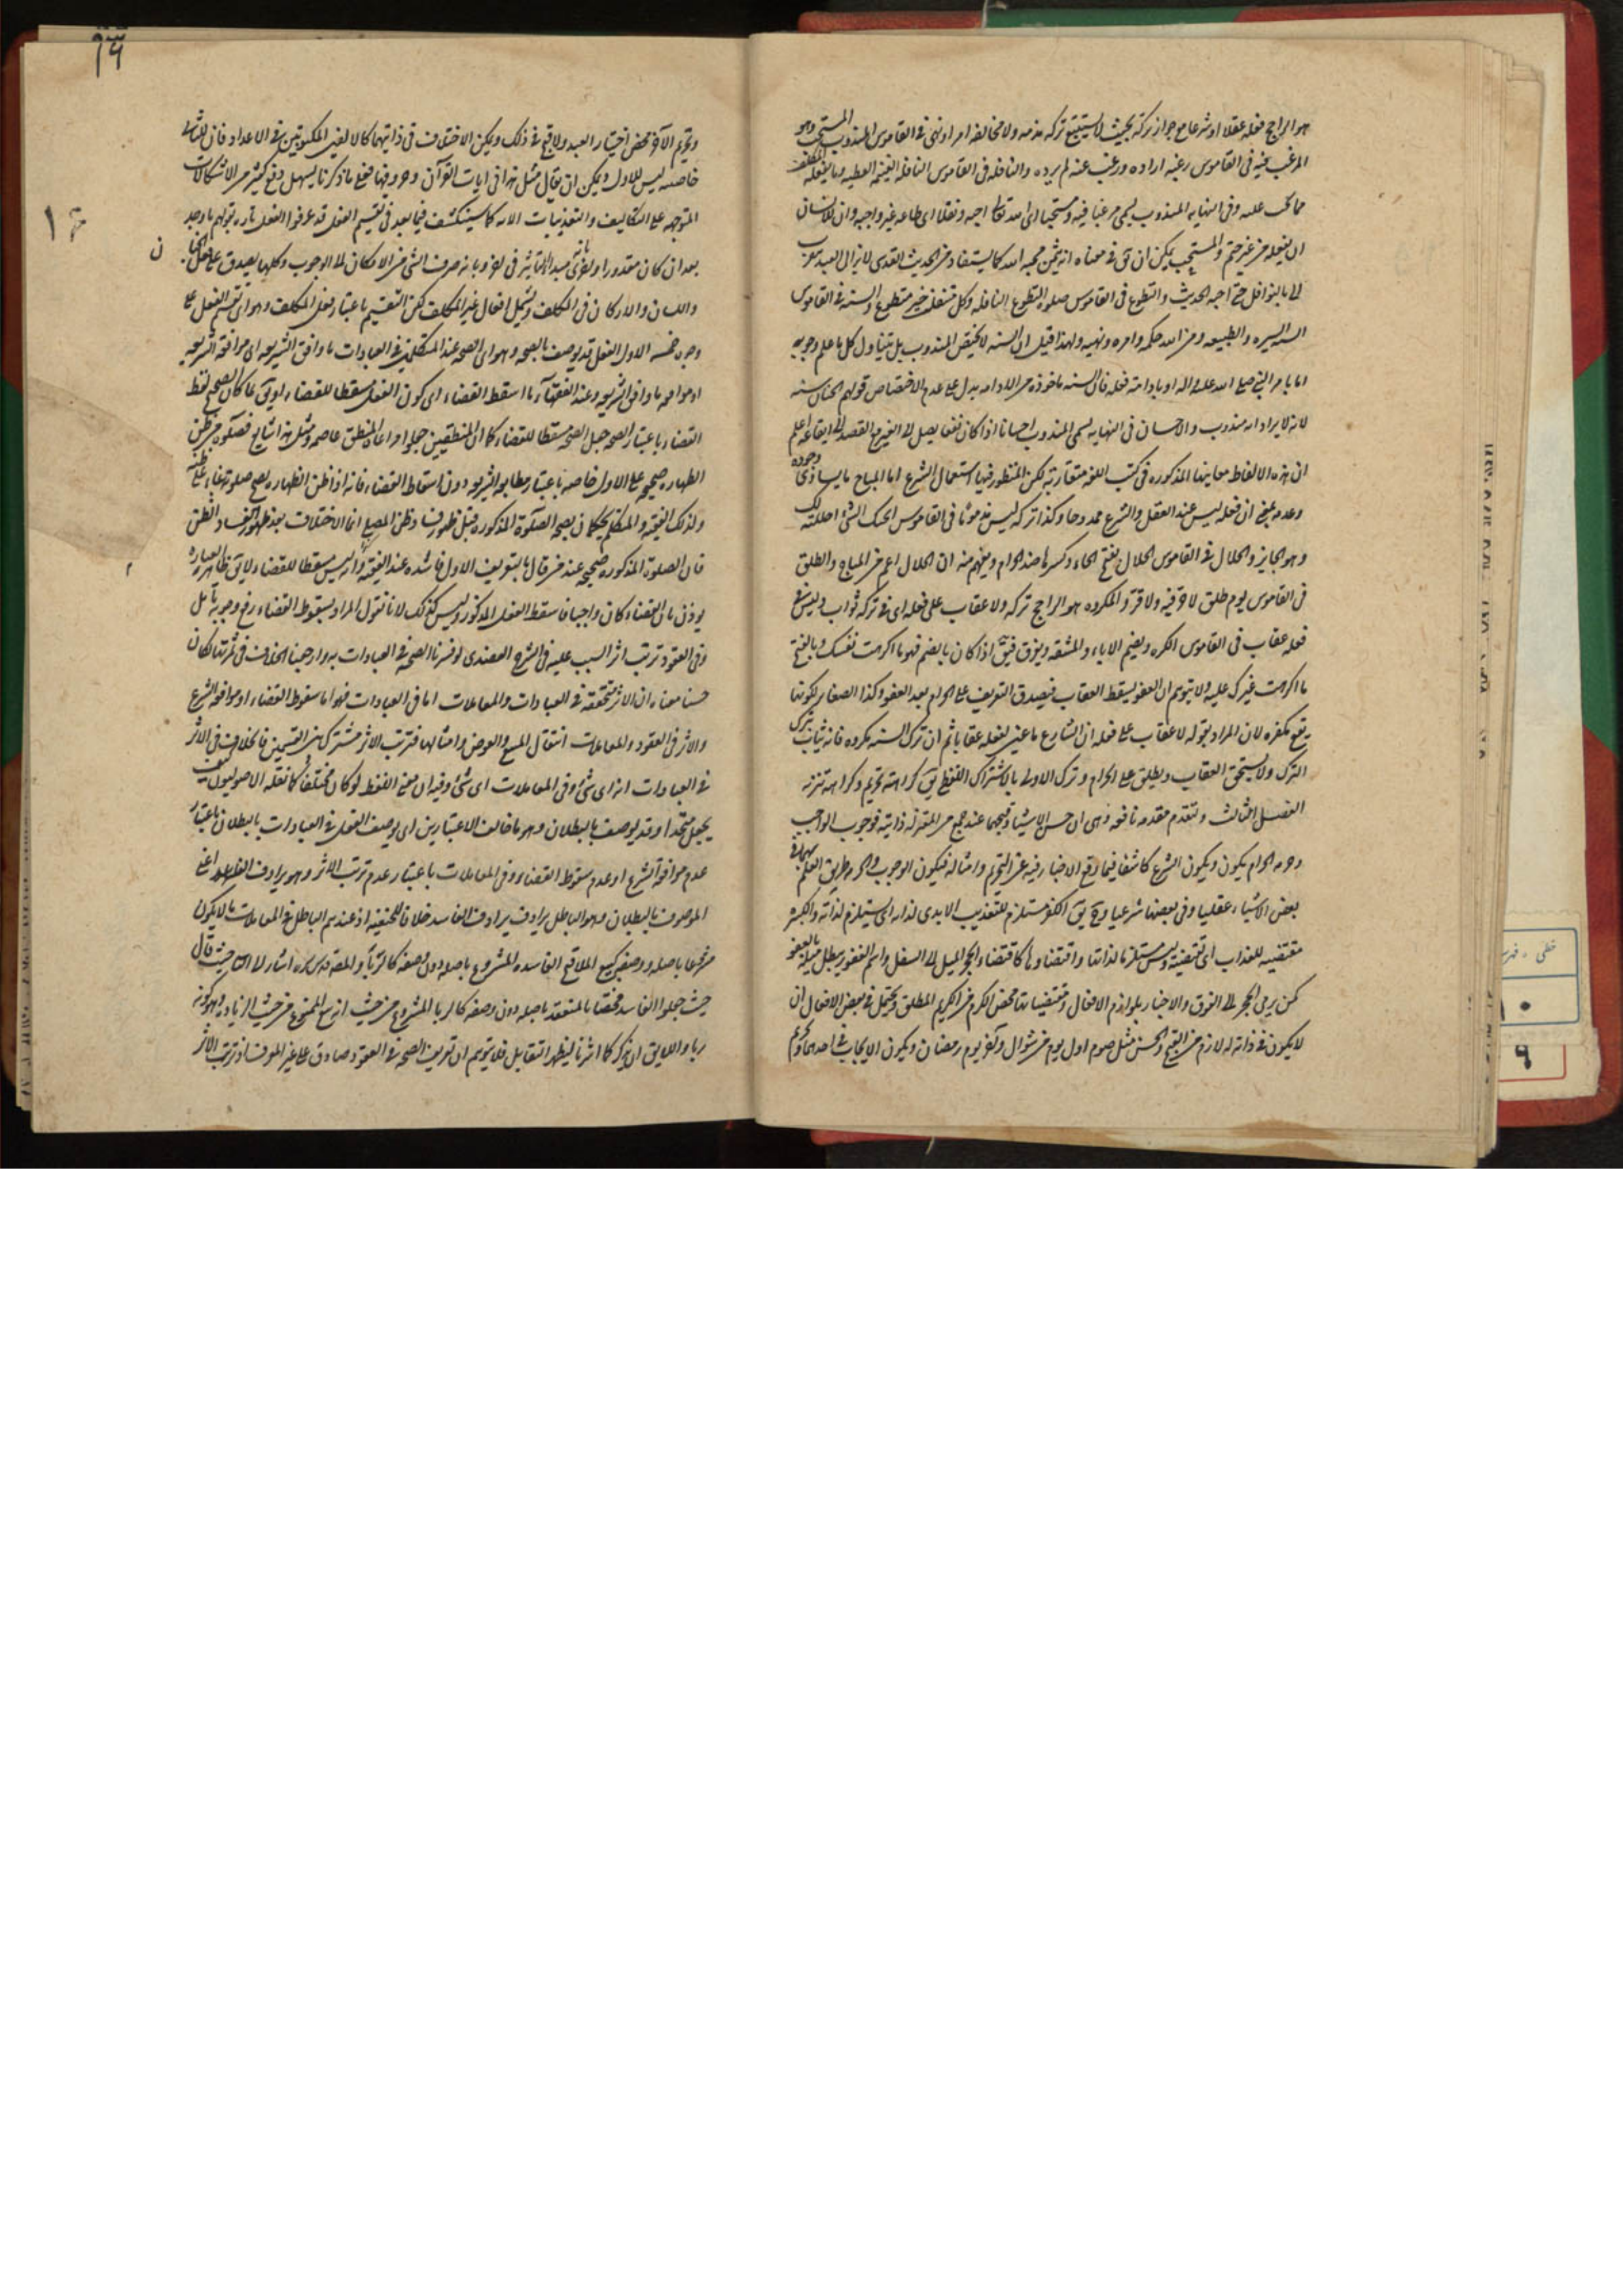 هو الراجح فعله عقلا او شرعا مع جواز تركه بحيث لا يستتبع تركه مذمه ولا مخالفه امر او نهى فى القاموس المندوب المستحب وهو
المرغب فيه فى القاموس رغبه اراده ورغب عنه لم يرده والنافله فى القاموس النافله الغنيمه العطيه وما يفعله المكلف
مما لم يجب عليه وفى النهايه المندوب يسمى مرغبا فيه ومستحبا اى الله تعالى احبه ونفلا اى طاعه غير واجبه وان للانسان
ان يفعله من غير حتم والمستحب يمكن ان يق فى معناه انه يثمر محبه الله كما يستفاد من الحديث القدسى لا يزال العبد يتقرب
الى بالنوافل حتى احبه الحديث والتطوع فى القاموس صلوه التطوع النافله وكل متنفل خير متطوع والسنه فى القاموس
السنه السيره والطبيعه ومن الله حكمه وامره ونهيه ولهذا قيل ان السنه لا يختص المندوب بل يتناول كل ما علم وجوبه
اما بامر النبى صلى الله عليه واله او بادامته فعله فان السنه ماخوذه من الادامه يدل على عدم الاختصاص قولهم الختان سنه
لانه لا يراد انه مندوب والاحسان فى النهايه يسمى المندوب احسانا اذا كان نفعا يصل الى الغير مع القصد الى ايقاعه اعلم
ان هذه الالفاظ معانيها المذكوره فى كتب اللغه متقاربه لكن المنظور فيها استعمال الشرع اما المباح ما يساوى وجوده
وعدمه بمعنى ان فعله ليس عند العقل والشرع ممدوحا وكذا تركه ليس مذموما فى القاموس ابحتك الشئ احللته لك
وهو الجايز والحلال فى القاموس الحلال بفتح الحاء وكسرها ضد الحرام ويفهم منه ان الحلال اعم من المباح والطلق
فى القاموس يوم طلق لا حر فيه ولا قر والمكروه هو الراجح تركه ولا عقاب على فعله اى فى تركه ثواب وليس فى
فعله عقاب فى القاموس الكره ويضم الاباء والمشقه ويفرق فيق اذا كان بالضم فهو ما اكرهت نفسك وبالفتح
ما اكرهت غيرك عليه ولا يتوهم ان العفو يسقط العقاب فيصدق التعريف على الحرام بعد العفو وكذا الصغاير لكونها
يقع مكفره لان المراد بقوله لا عقاب على فعله ان الشارع ما عين لفعله عقابا ثم ان ترك السنه مكروه فانه يثاب بترك
الترك ولا يستحق العقاب ويطلق على الحرام وترك الاولى بالاشتراك اللفظى يق كراهه تحريم وكراهه تنزيه
الفصل الثالث ولنقدم مقدمه نافعه وهى ان حسن الاشياء وقبحها عند جمع من المعتزله ذاتيه فوجوب الواجب
وحرمه الحرام يكون ويكون الشرع كاشفا فيما وقع الاخبار فيه عن التحريم وامثاله فيكون الوجوب والحرمه طريق العلم بهما فى
بعض الاشياء عقليا وفى بعضها شرعيا وح يق الكفر مستلزم للتعذيب الابدى لذاته اى يستلزم لذاته والكبيره
مقتضيه للعذاب اى تقتضيه وليس مستلزما لذاتها واقتضاؤها كاقتضاء الحجر الميل الى السفل واسم الغفور يبطل ميله بالعفو
كمن يرمى الحجر الى الفوق والاخبار بلوازم الافعال ومقتضياتها محض الكرم من الكريم المطلق ويحتمل فى بعض الافعال ان
لا يكون فى ذاته له لازم من القبح والحسن مثل صوم اول يوم من شوال وآخر يوم رمضان ويكون الايجاب فى احدهما وتحريم
وتحريم الآخر محض اختبار العبد ولا قبح فى ذلك ويمكن الاختلاف فى ذاتيهما كالالفين المكتوبتين فى الاعداد فان للثانى
خاصيه ليس للاول ويمكن ان يقال مثل هذا فى ايات القرآن وحروفها فمع ما ذكرنا يسهل دفع كثير من الاشكالات
المتوجهه على التكاليف والتعذيبات كما سينكشف فيما بعد فى تقسيم الفعل قد عرفوا الفعل تاره بقولهم ما وجد
بعد ان كان مقدورا واخرى بانه مبدء التاثير فى اخر وبانه صرف الشئ من الامكان الى الوجوب وكلها يصدق على فعل الجنان
واللسان والاركان فى المكلف ويشمل افعال غير المكلف لكن التقسيم باعتبار فعل المكلف وهو اى تقسيم الفعل على
وجوه خمسه الاول الفعل قد يوصف بالصحه وهو اى الصحه عند المتكلمين فى العبادات ما وافق الشريعه اى موافقه الشريعه
او مواقعه ما وافق الشريعه وعند الفقهاء ما اسقط القضاء اى كون الفعل مسقطا للقضاء او يق لما كان الصحه لفظ
القضاء باعتبار الصحه جعل الصحه مسقطا للقضاء كما ان المنطقيين جعلوا مراعاه المنطق عاصمه ومثل هذا شايع فصلوه من ظن
الطهاره صحيحه على الاول خاصه باعتبار مطابقه الشريعه دون اسقاط القضاء فانه اذا ظن الطهاره يصح صلوته بناء على ظنه
ولذلك الفقيه والمتكلم يحكمان بصحه الصلوة المذكوره قبل ظهور فساد ظن المصلى انما الاختلاف بعد ظهور فساد الظن
فان الصلوة المذكوره صحيحه عند من قال بالتعريف الاول فاسده عند الفقيه لانه ليس مسقطا للقضاء ولا يق ظاهر العباره
يوذن بان القضاء كان واجبا فاسقط الفعل المذكور وليس كذلك لانا نقول المراد بسقوط القضاء رفع وجوبه تامل
وفى العقود ترتب اثر السبب عليه فى الشرح العضدى لو فسرنا الصحه فى العبادات به وارجعنا الخلاف فى ثمرتها لكان
حسنا معناه ان الاثر متحققه فى العبادات والمعاملات اما فى العبادات فهو اما سقوط القضاء او موافقه الشرع
والاثر فى العقود والمعاملات انتقال المبيع والعوض وامثالهما فترتب الاثر مشترك بين القسمين فالخلاف فى الاثر
فى العبادات انه اى شئ وفى المعاملات اى شئ وفيه ان معنى اللفظ لو كان مختلفا كما نقله الاصوليون كيف
يجعل متحدا وقد يوصف بالبطلان وهو ما خالف الاعتبارين اى يوصف الفعل فى العبادات بالبطلان باعتبار
عدم موافقه الشرع او عدم سقوط القضاء وفى المعاملات باعتبار عدم ترتب الاثر وهو يرادف الفاسد اعنى
الموصوف بالبطلان وهو الباطل يرادف الفاسد خلافا للحنفيه اذ عندهم الباطل فى المعاملات ما لا يكون
مشروعا باصله ووصفه كبيع الملاقيح والفاسد المشروع باصله دون وصفه كالربا والمصنف قدس سره اشار الى حيث قال
حيث جعلوا الفاسد مختصا بالمنعقد باصله دون وصفه كالربا المشروع من حيث انه بيع الممنوع من حيث الزياده وهو كونه
ربا واللايق ان يذكر كما اثرنا ليظهر التقابل فلا يتوهم ان تعريف الصحه فى العقود صادق على غير المعرف اذ ترتب الاثر